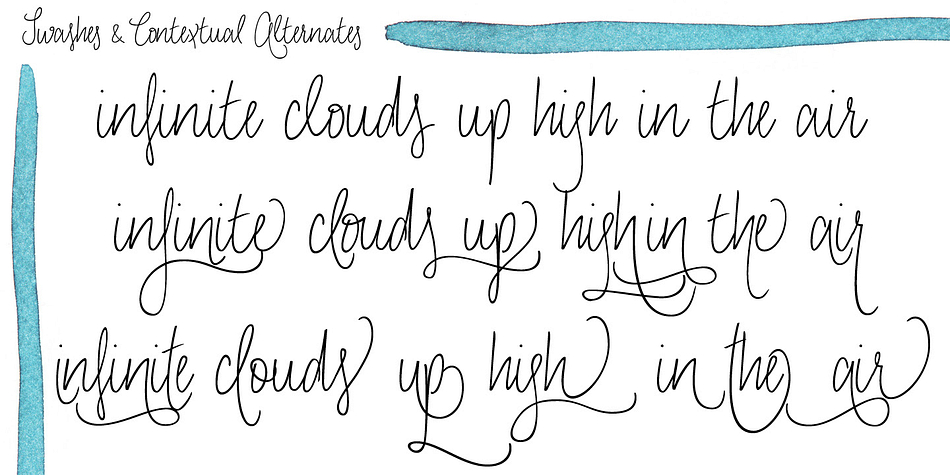 Swashes & Contextual Alternates
infinite clouds up high in the air
infinite clouds up high in the air
infinite clouds up high in the air